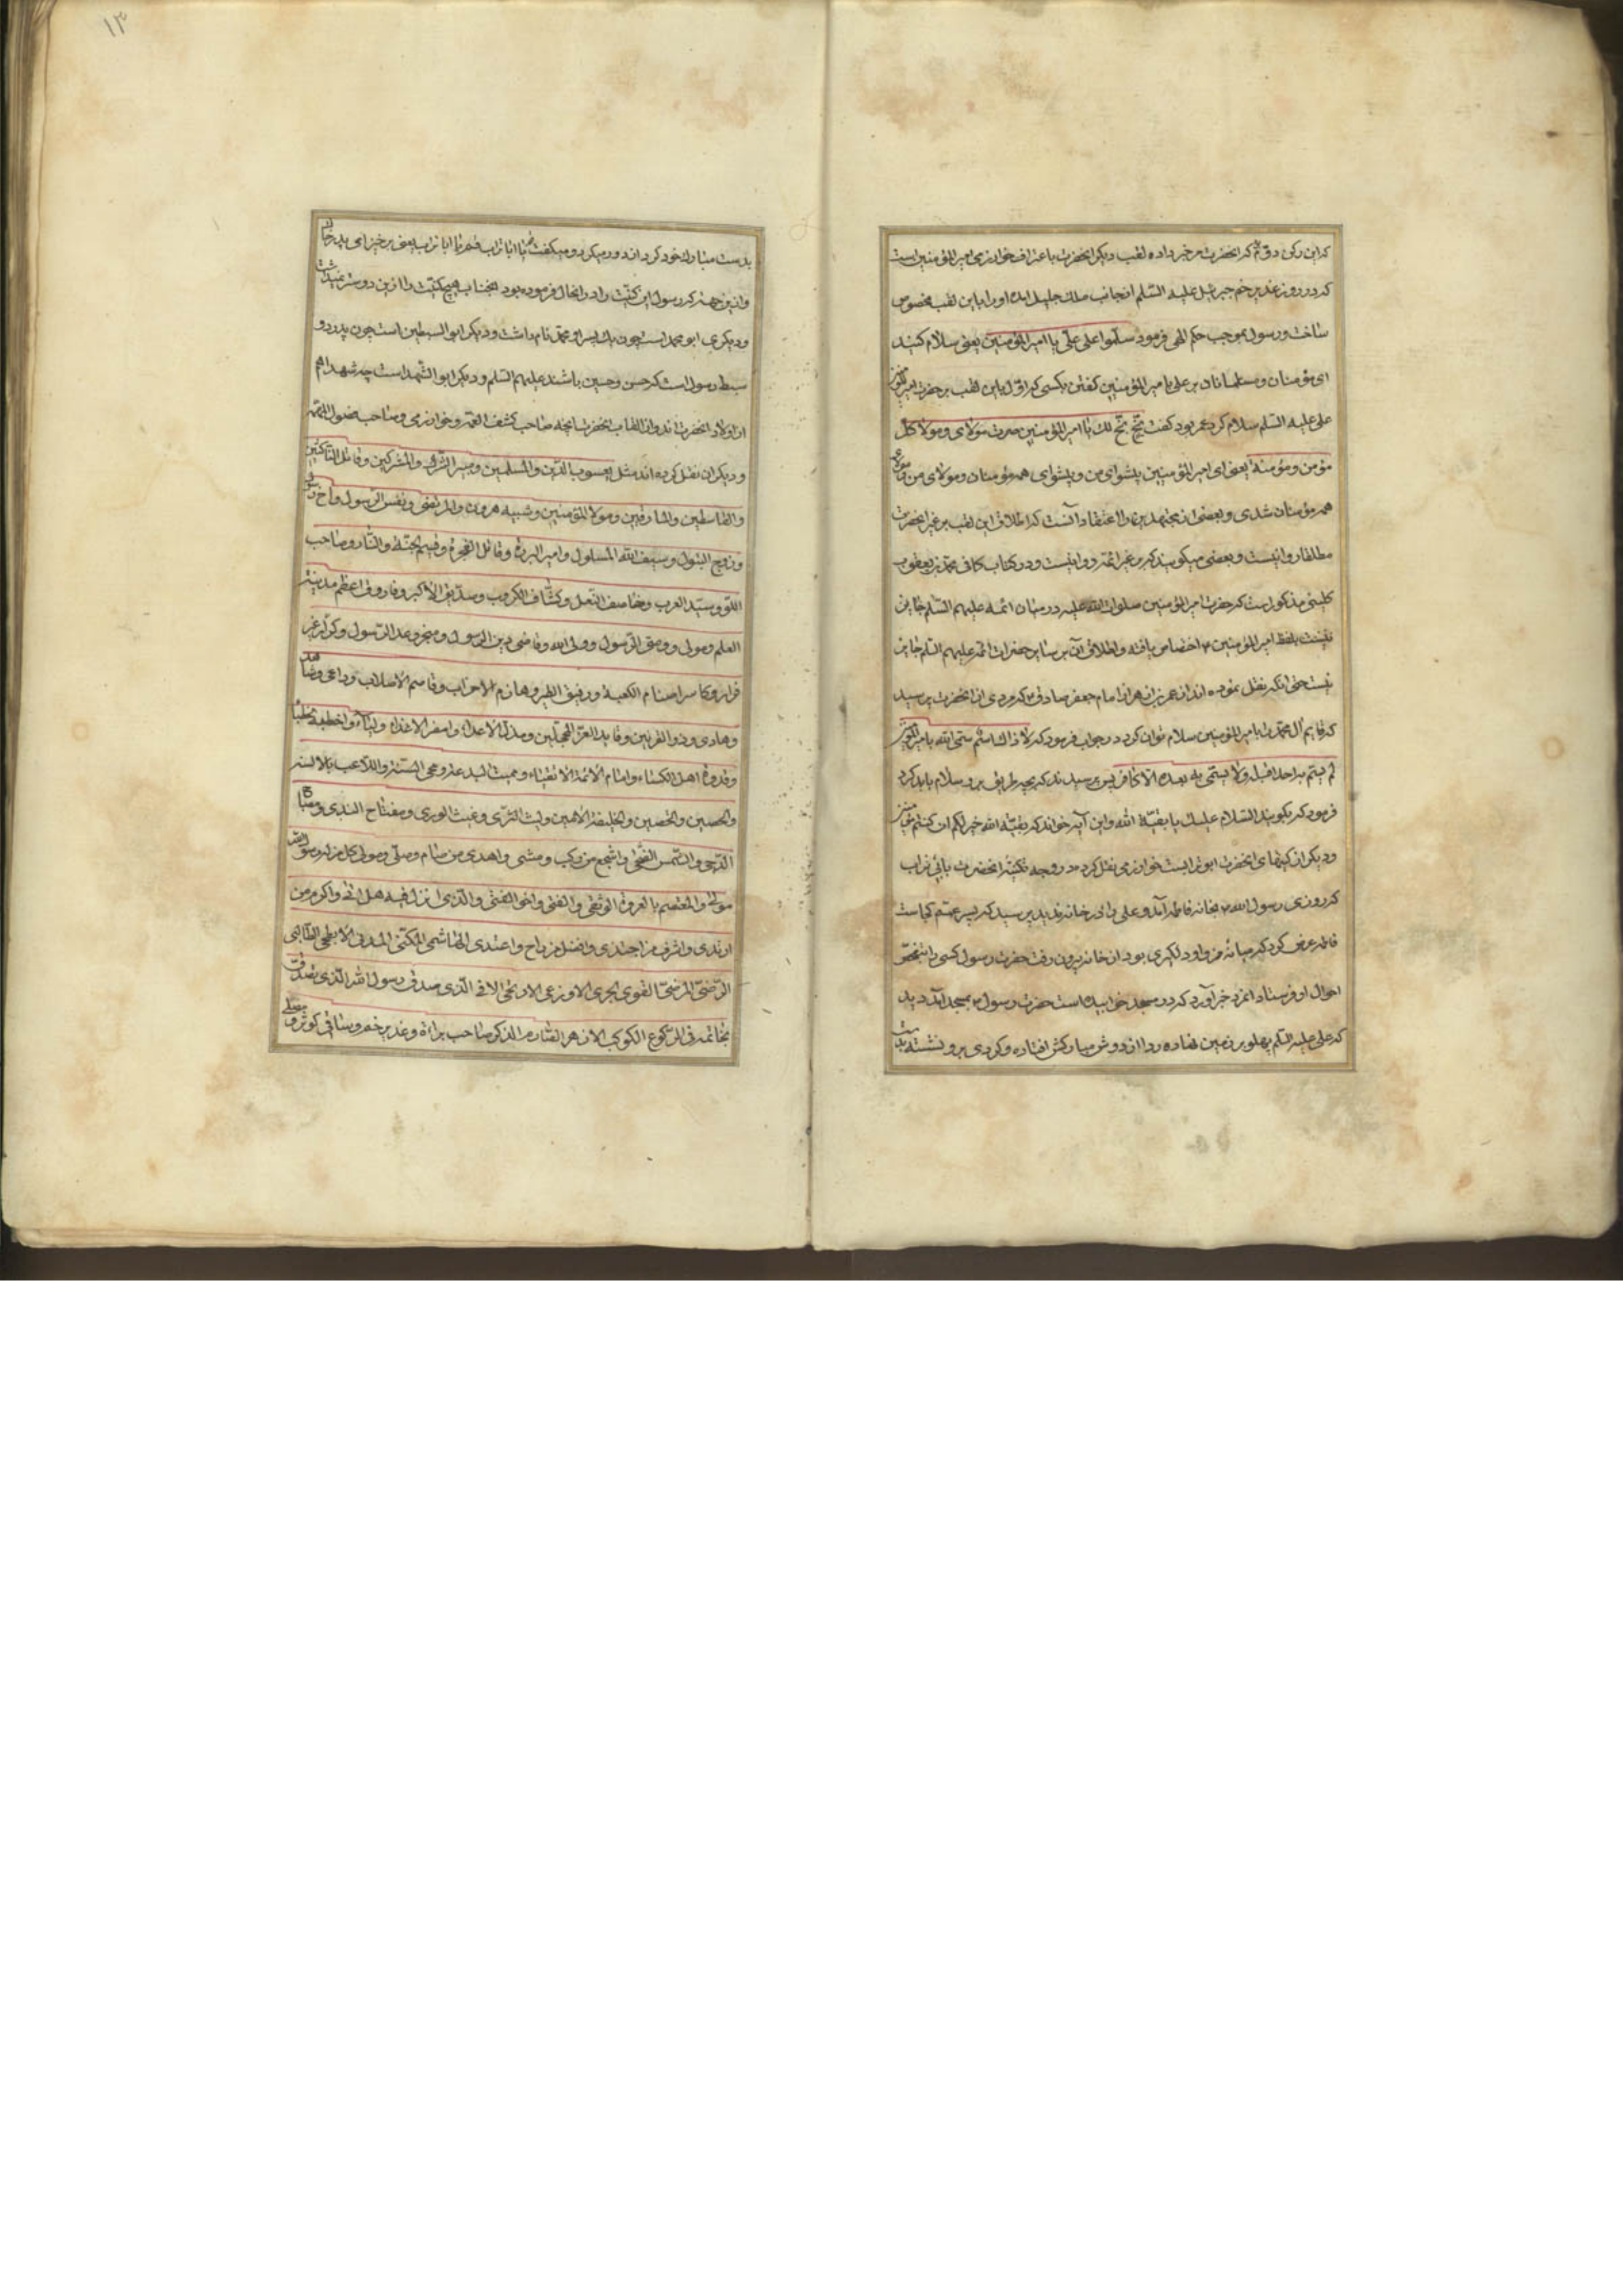 که این رکن دوم که انحضرت مرا خبر داده لقب دیکر انحضرت باعتراف خوارزمی امیر المؤمنین است
که در روز غدیر خم جبرئیل علیه السلم از جانب ملک جلیل امده او را باین لقب مخصوص
ساخت و رسول بموجب حکم الهی فرمود سلّموا علی علیّ یا امیر المؤمنین یعنی سلام کنید
ای مؤمنان و مسلمانان بر علی یا امیر المؤمنین کفتن بکسی که اوّل باین لقب بر حضرت امیر المؤمنین
علی علیه السلم سلام کرد عمر بود کفت بخّ بخّ لک یا امیر المؤمنین صرت مولای و مولا کل
مؤمن و مؤمنة یعنی ای امیر المؤمنین پیشوای من و پیشوای همه مؤمنان و مولای من و مولای
همه مؤمنان شدی و بعضی از مجتهدین را اعتقاد آنست که اطلاق این لقب بر غیر انحضرت
مطلقا روا نیست و بعضی میکویند که بر غیر ائمه روا نیست و در کتاب کافی محمّد بن یعقوب
کلینی مذکور است که حضرت امیر المؤمنین صلوات الله علیه در میان ائمه علیهم السّلم جاین
نیست بلفظ امیر المؤمنین ۴ اختصاص یافته و اطلاق آن بر سایر حضرات ائمه علیهم السّلم جاین
نیست حتی انکه نقل نموده اند از عمر بن زاهر از امام جعفر صادق ۴ که مردی از انحضرت پرسید
که قایم آل محمّد را بامیر المؤمنین سلام توان کرد در جواب فرمود که لا ذاک اسم سمّی الله به امیر المؤمنین
لم یسمّ به احد قبله و لا یسمّی به بعده الّا کافر پس پرسیدند که بچه طریق بر و سلام باید کرد
فرمود که بکویند السّلام علیک یا بقیّة الله و این آیه خواند که بقیّة الله خیر لکم ان کنتم مؤمنین
و دیکر از کنیتهای انحضرت ابو تراب است خوارزمی نقل کرده در وجه تکنیة انحضرت بابی تراب
که روزی رسول الله ۴ بخانه فاطمه آمد و علی را در خانه ندید پرسید که پسر عمّم کجاست
فاطمه عرض کرد که میانه من و او دلکیری بود از خانه بیرون رفت حضرت رسول کسی را بتفحّص
احوال او فرستاد انمرد خبر آورد که در مسجد خوابیده است حضرت رسول ۴ بمسجد آمد دید
که علی علیه السّلم پهلو بر زمین نهاده ردا از دوش مبارکش افتاده و کردی بر و نشسته پس
۱۳
بدست مبارک خود کرد از و دور میکرد و میکفت قم یا ابا تراب قم یا ابا تراب یعنی برخیز ای پدر خاک
و از این جهة که رسول این کنیّت را در انحال فرموده بود انجناب هیچ کنیّت را ازین دوستر نمیداشت
و دیکری ابو محمد است چون یک پسر او محمّد نام داشت و دیکر ابو السبطین است چون پدر دو
سبط رسول است که حسن و حسین باشند علیهم السّلم و دیکر ابو الشهداست چه شهدا هم
از اولاد انحضرت اند و از القاب انحضرت انچه صاحب کشف الغمه و خوارزمی و صاحب فصول المهمّه
و دیکران نقل کرده اند مثل یعسوب الدّین و المسلمین و مبیر الشّرک و المشرکین و قاتل الناکثین
و القاسطین و المارقین و مولا المؤمنین و شبیه هرون و المرتضی و نفس الرّسول و اخ رسول
و زوج البتول و سیف الله المسلول و امیر البررة و قاتل الفجرة و قسیم الجنّة و النّار و صاحب
اللّوا و سیّد العرب و خاصف النّعل و کشّاف الکروب و صدّیق الاکبر و فاروق اعظم مدینة
العلم و مولی و وصیّ الرّسول و ولی الله و قاضی دین الرسول و منجز وعد الرّسول و کرّار غیر
فرار و کاسر اصنام الکعبة و رفیق الطیر و هازم الاحزاب و قاصم الاصلاب و داعی و شاهد
و هادی و ذو القرنین و قاید الغرّ المحجّلین و مذلّ الاعداء
و قدوة اهل الکساء و امام الائمة الاتقیاء و ممیت البدعة و محی السّنة و اللاعب بالاسنة
و الحصین و الخلیفة الامین و لیث الثّری و غیث الوری و مفتاح الندی و مصباح
الدّجی و الشّمس الضّحی و اشجع من رکب و مشی و اهدی من صام و صلّی و مولی کل من له رسول الله
مولی و المعتصم بالعروة الوثقی و الفتی و اخو الفتی و الّذی انزل فیه هل اتی و اکرم من
ارتدی و اشرف من احتذی و افضل من راح و اغتدی الهاشمی المکّی المدنی الابطحی الطّالبی
الرّضیّ المرضیّ القوی الجری الّذی صدق رسول الله الّذی تصدّق
بخاتمه فی الرّکوع الکوکب الازهر صاحب براءة و غدیر خم و ساقی کوثر و مصلّی